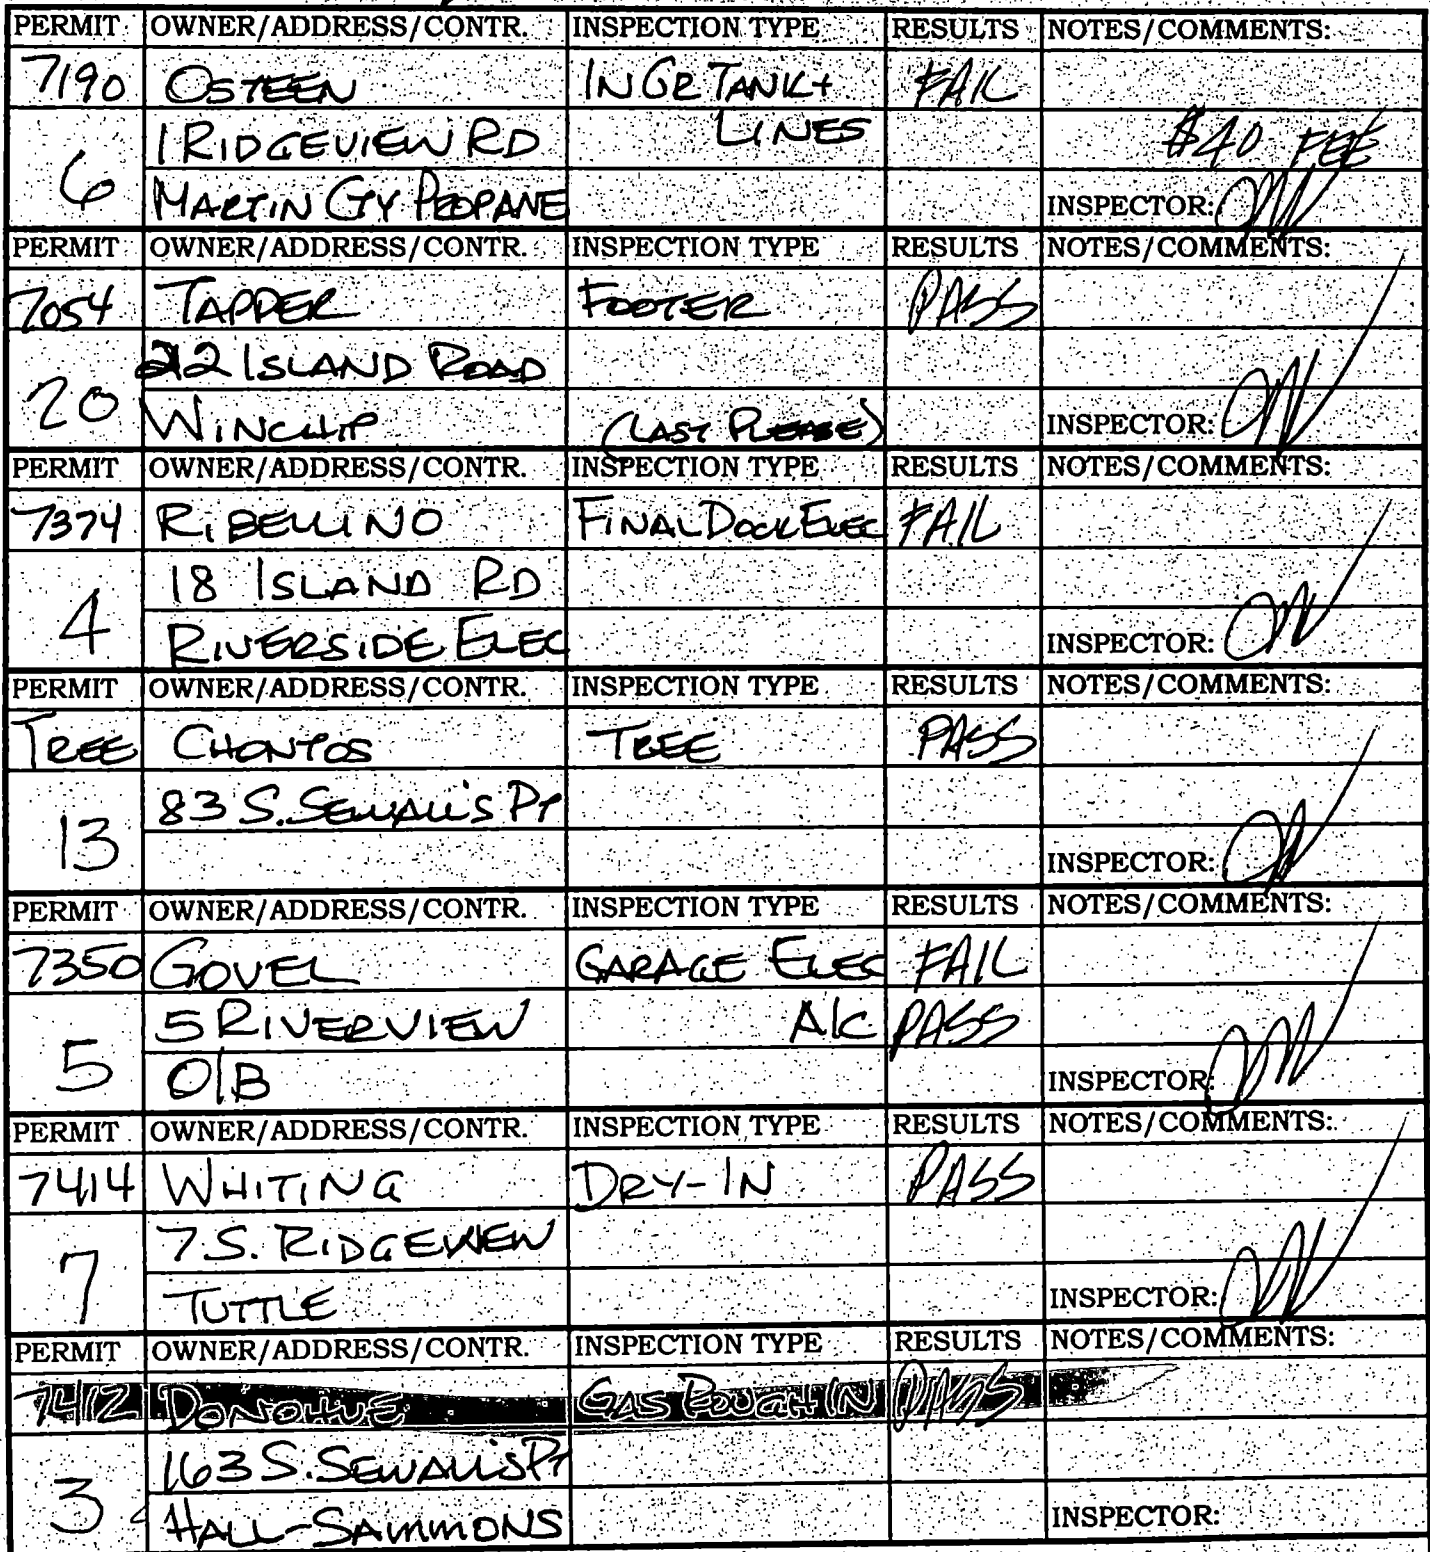 PERMIT OWNER/ADDRESS/CONTR. INSPECTION TYPE RESULTS NOTES/COMMENTS:
7190 OSTEEN IN GR TANK + FAIL
6 1 RIDGEVIEW RD LINES $40 FEE
MARTIN CTY PROPANE INSPECTOR:
PERMIT OWNER/ADDRESS/CONTR. INSPECTION TYPE RESULTS NOTES/COMMENTS:
7054 TAPPER FOOTER PASS
20 212 ISLAND ROAD
WINCHIP (LAST PLEASE) INSPECTOR:
PERMIT OWNER/ADDRESS/CONTR. INSPECTION TYPE RESULTS NOTES/COMMENTS:
7374 RIBELLINO FINAL DOCK ELEC FAIL
4 18 ISLAND RD
RIVERSIDE ELEC INSPECTOR:
PERMIT OWNER/ADDRESS/CONTR. INSPECTION TYPE RESULTS NOTES/COMMENTS:
TREE CHONTOS TREE PASS
13 83 S. SEWALL'S PT
INSPECTOR:
PERMIT OWNER/ADDRESS/CONTR. INSPECTION TYPE RESULTS NOTES/COMMENTS:
7350 GOVEL GARAGE ELEC FAIL
5 5 RIVERVIEW A/C PASS
O/B INSPECTOR:
PERMIT OWNER/ADDRESS/CONTR. INSPECTION TYPE RESULTS NOTES/COMMENTS:
7414 WHITING DRY-IN PASS
7 7 S. RIDGEVIEW
TUTTLE INSPECTOR:
PERMIT OWNER/ADDRESS/CONTR. INSPECTION TYPE RESULTS NOTES/COMMENTS:
7412 DONOHUE GAS ROUGH IN PASS
3 163 S. SEWALL'S PT
HALL-SAMMONS INSPECTOR: